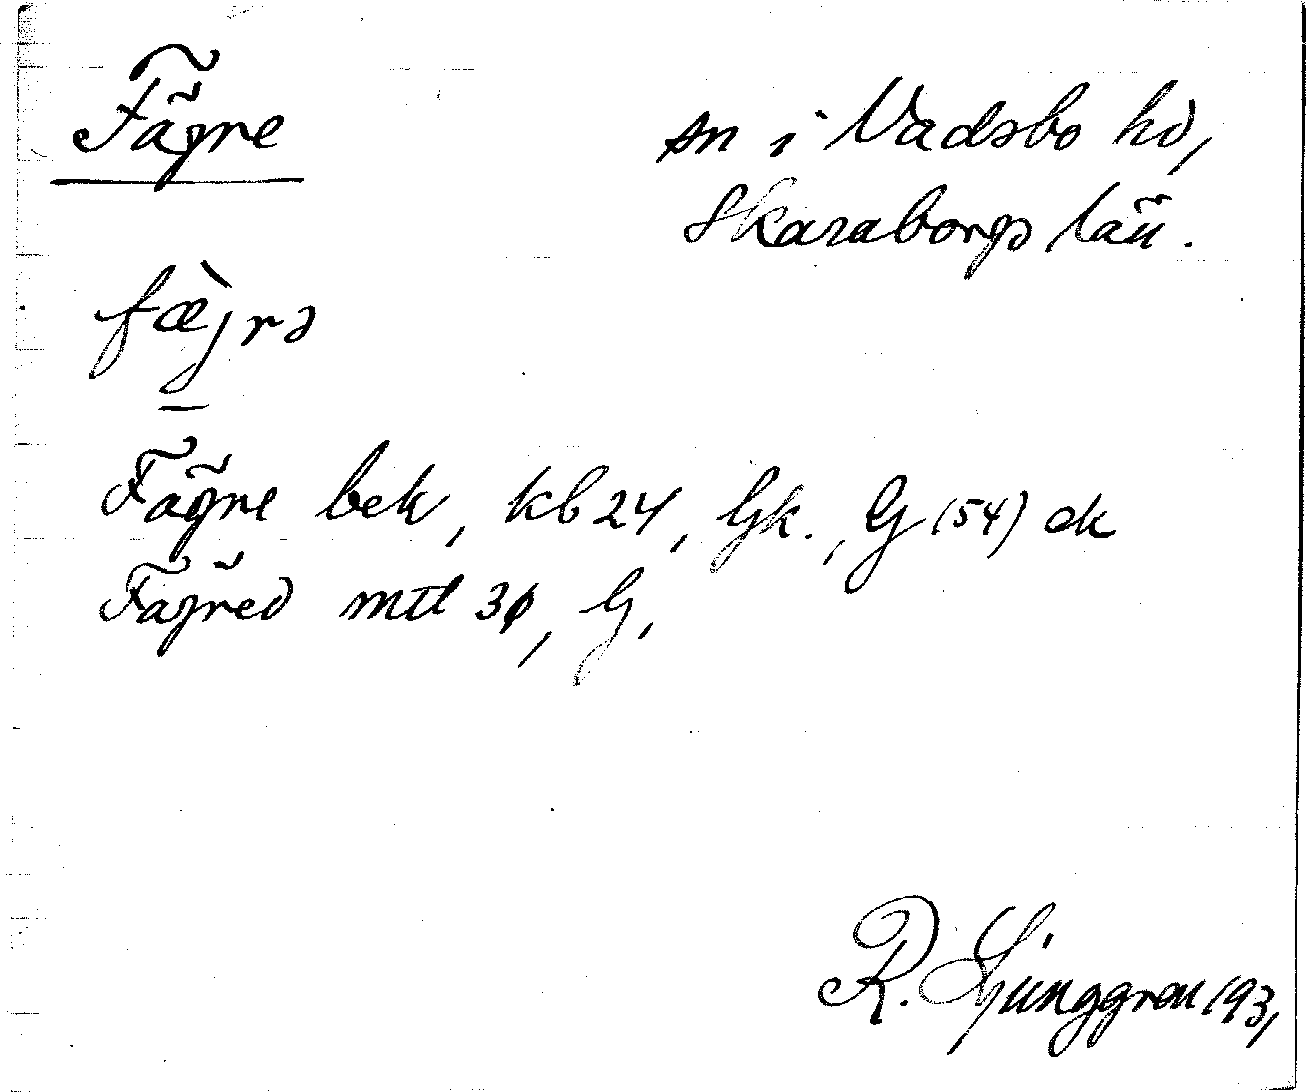 Fägre
sn i Vadsbo hd,
Skaraborgs län.
fæ̀jrə
Fägre bek, kb 24, Gk., G (54) ek
Fägred mtl 30, G,
R. Ljunggren 193,